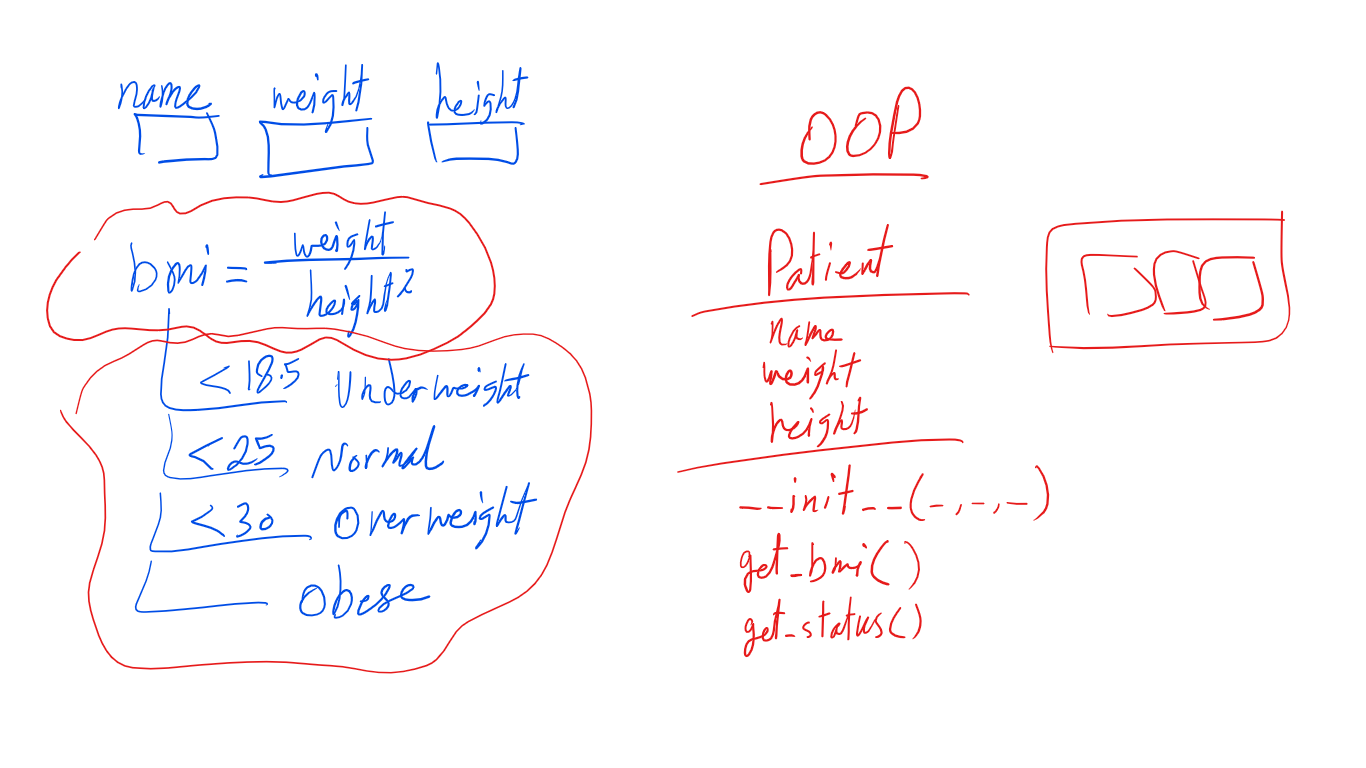 name weight height
bmi = weight / height²
< 18.5 Underweight
< 25 Normal
< 30 Overweight
Obese
OOP
Patient
name
weight
height
__init__(-,-,-)
get_bmi()
get_status()